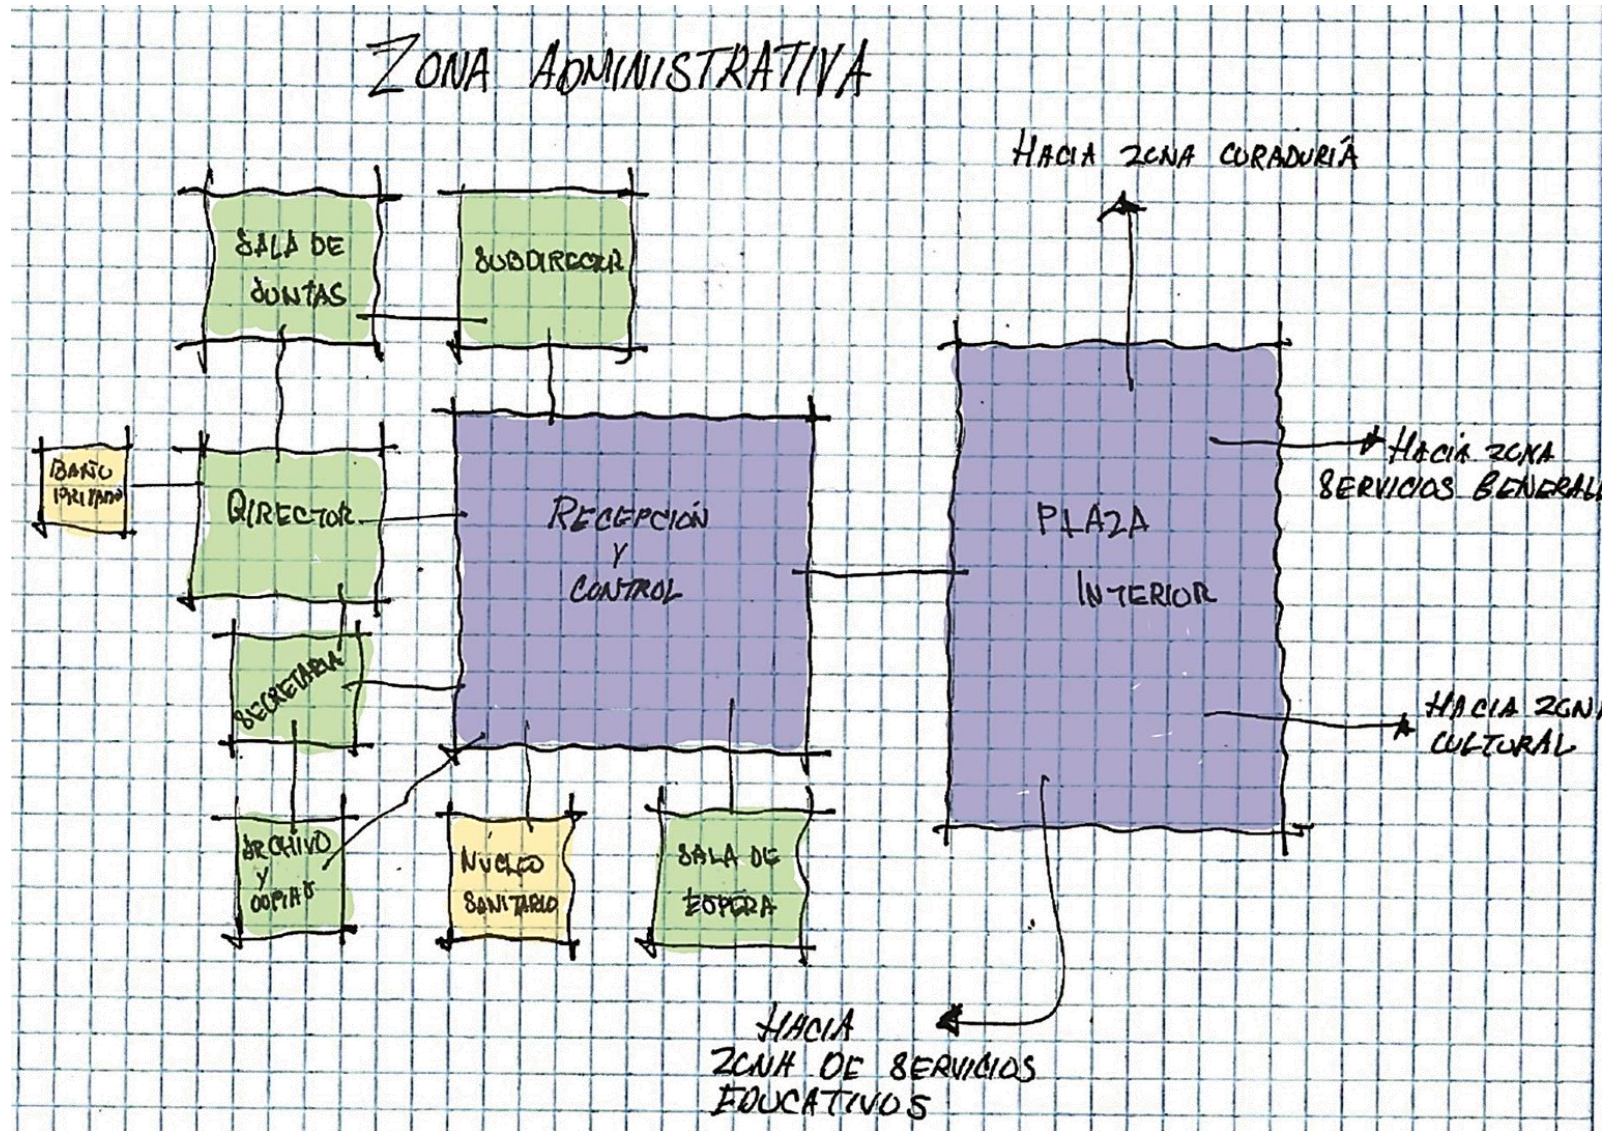 ZONA ADMINISTRATIVA
HACIA ZONA CURADURÍA
SALA DE
JUNTAS
SUBDIRECTOR
BAÑO
PRIVADO
DIRECTOR
RECEPCIÓN
Y
CONTROL
PLAZA
INTERIOR
HACIA ZONA
SERVICIOS GENERALE
SECRETARIA
HACIA ZONA
CULTURAL
ARCHIVO
Y
COPIAS
NÚCLEO
SANITARIO
SALA DE
ESPERA
HACIA
ZONA DE SERVICIOS
EDUCATIVOS